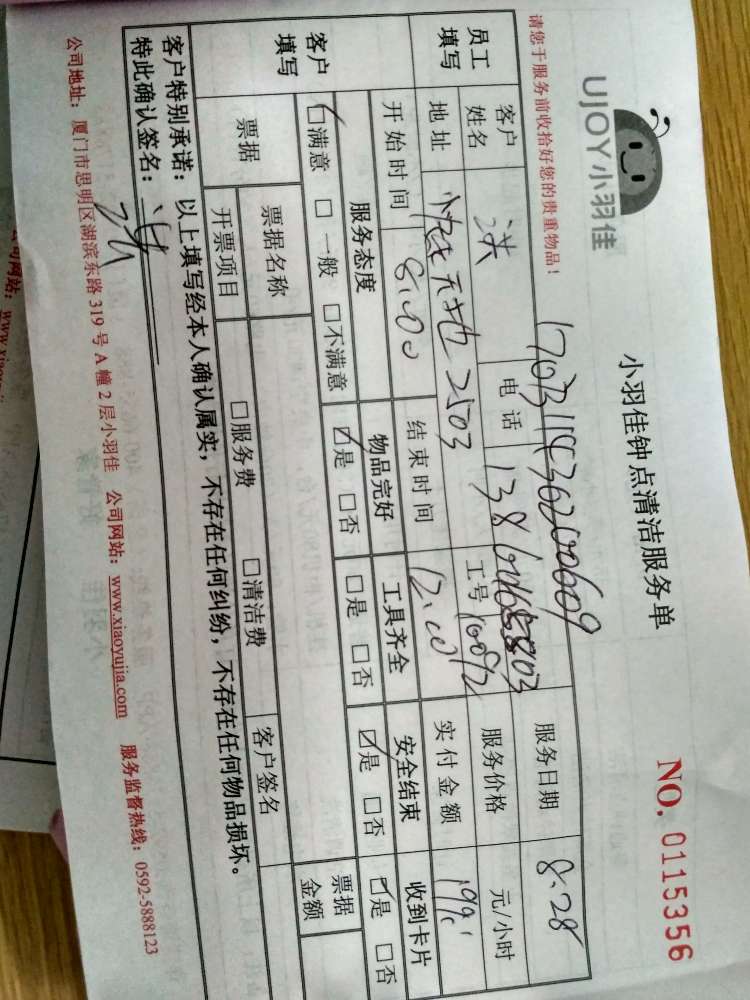 UJOY小羽佳
小羽佳钟点清洁服务单
NO. 0115356
请您于服务前收拾好您的贵重物品！
员工填写
客户姓名 洪 电话 服务日期 8.28
地址 天地 2503 工号 服务价格 元/小时
开始时间 8:00 结束时间 12:00 实付金额
客户填写
服务态度 物品完好 工具齐全 安全结束 收到卡片
☑满意 □一般 □不满意 ☑是 □否 □是 □否 ☑是 □否 ☑是 □否
票据 票据名称 客户签名 票据金额
开票项目 □服务费 □清洁费
客户特别承诺：以上填写经本人确认属实，不存在任何纠纷，不存在任何物品损坏。
特此确认签名：洪
公司地址：厦门市思明区湖滨东路 319 号 A 幢 2 层小羽佳 公司网站：www.xiaoyujia.com 服务监督热线：0592-5888123
公司网站：www.xiaoy